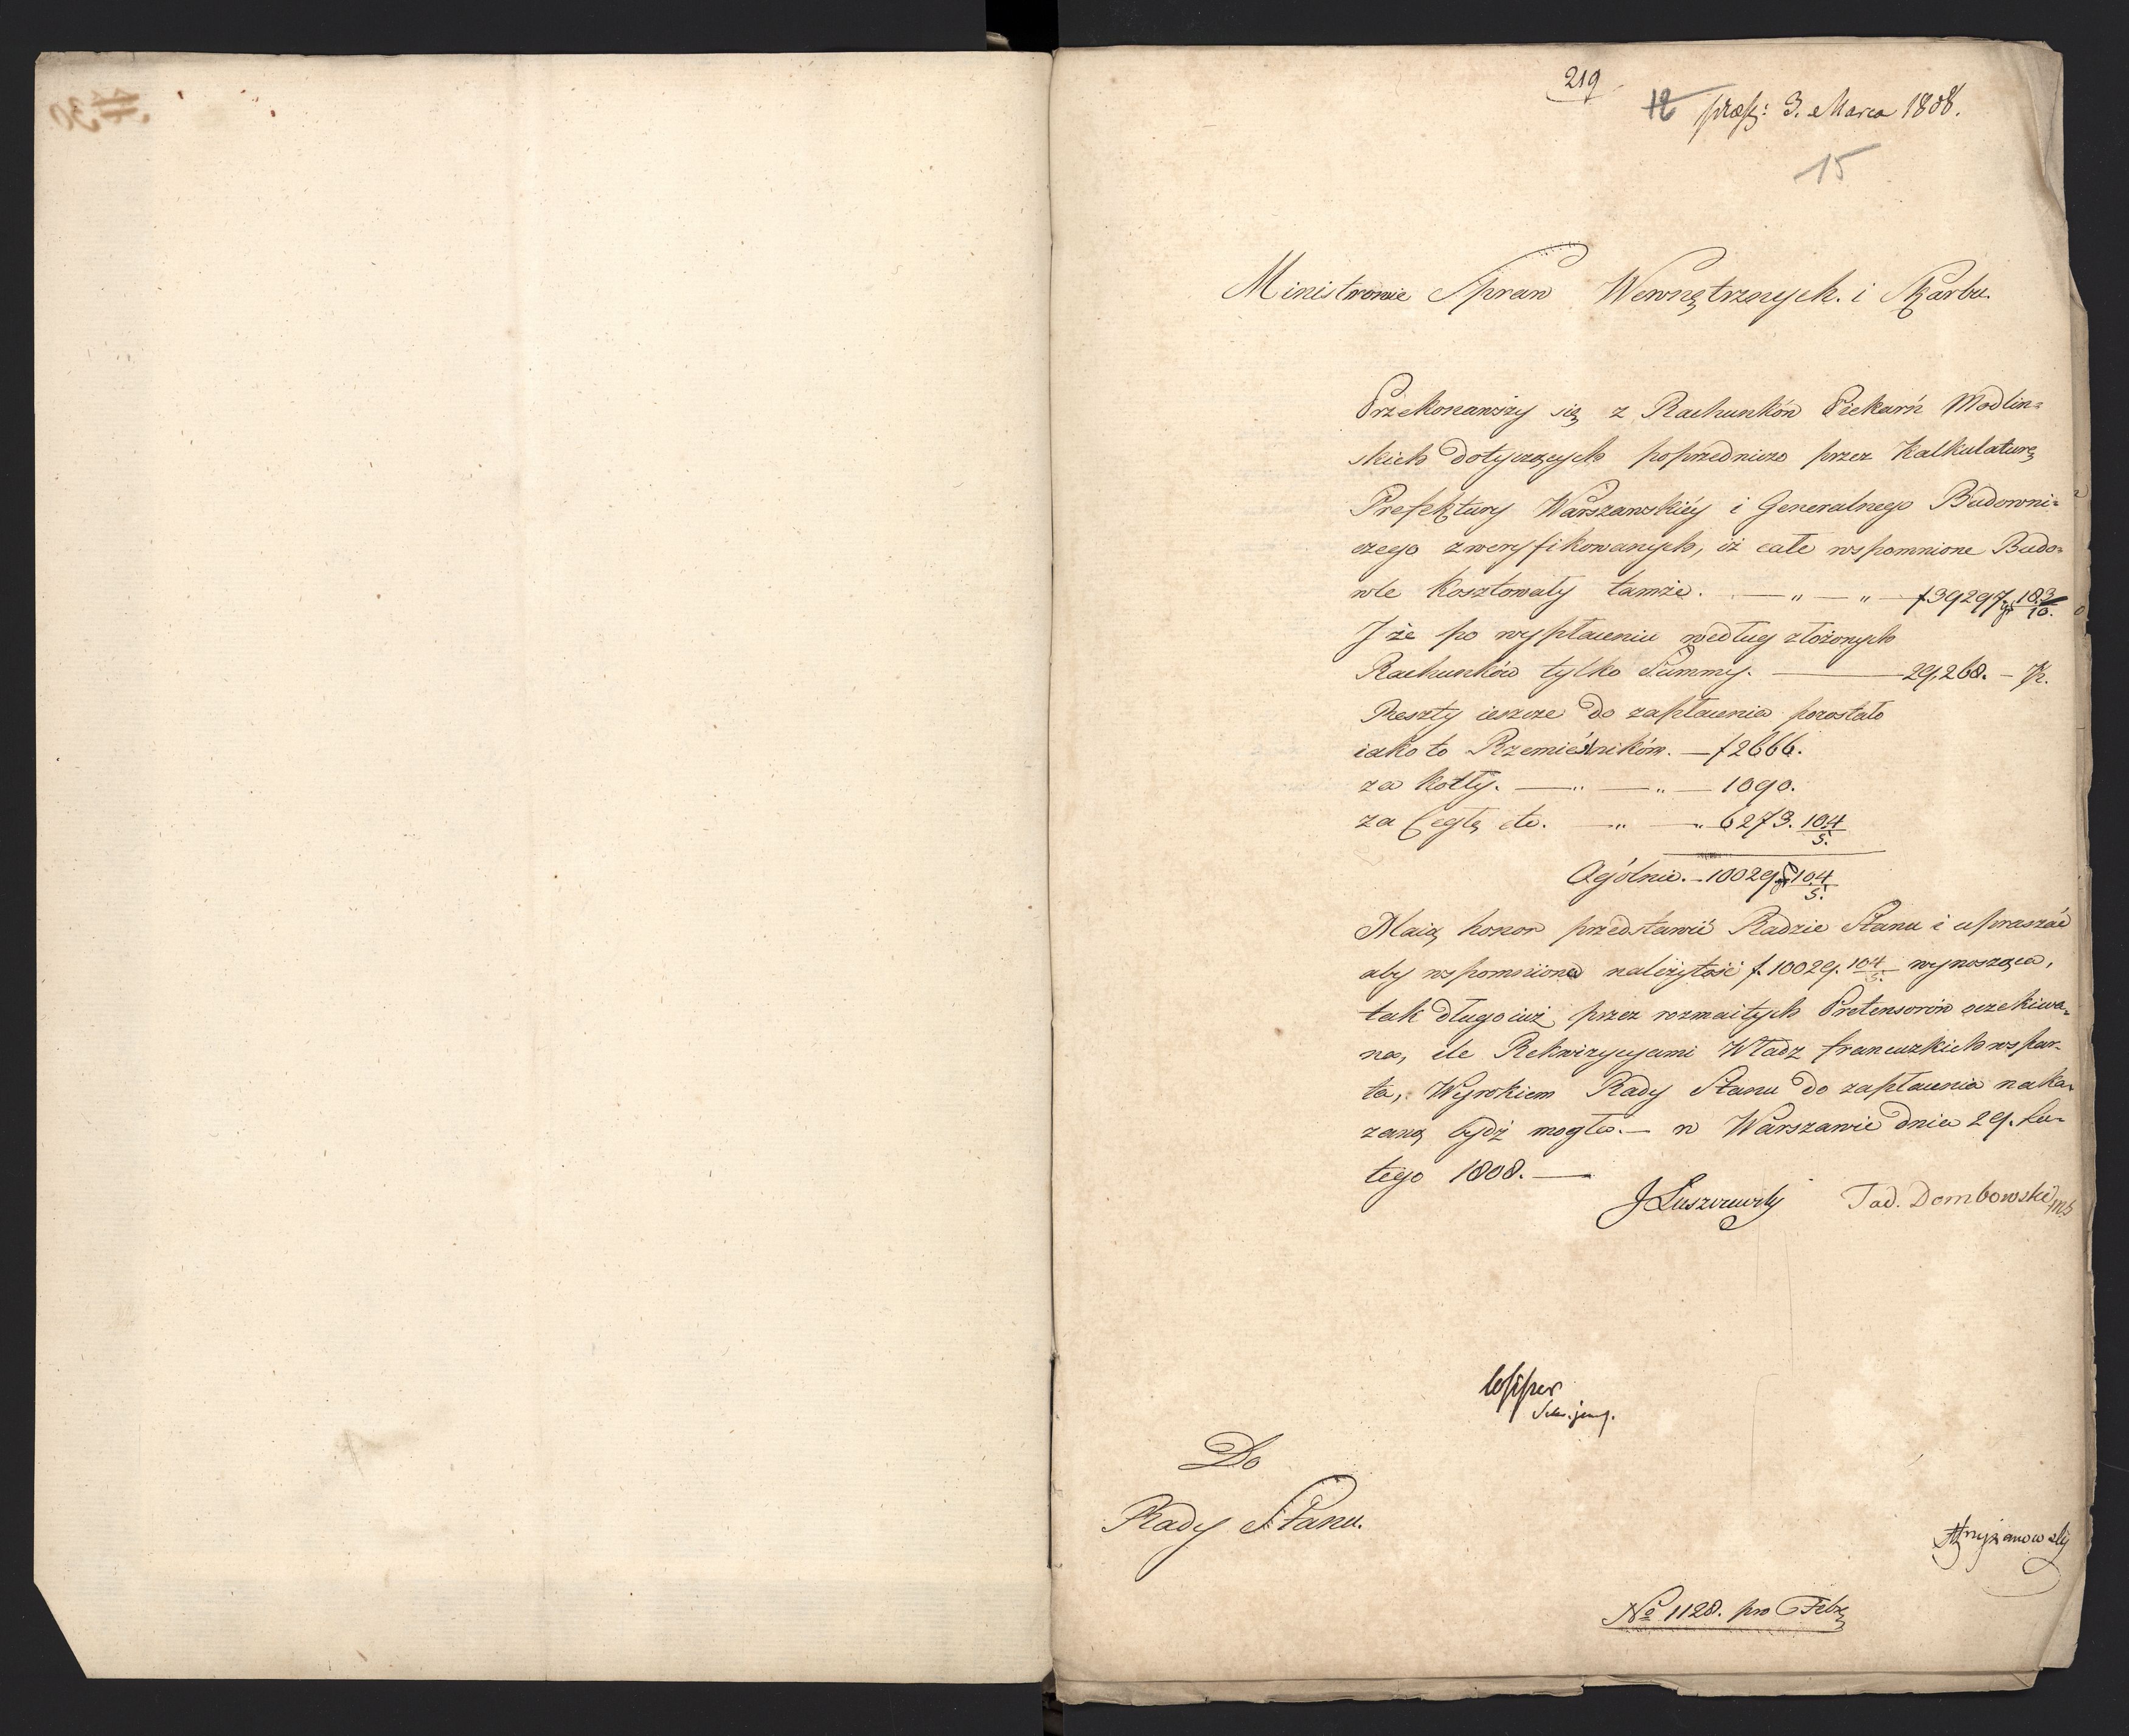 219
12 præs: 3. Marca 1808.
15
Ministrowie Spraw Wewnętrznych. i Skarbu.
Przekonawszy się z Rachunków Piekarń Modlin=
skich dotyczących poprzedniczo przez Kalkulaturę
Prefektury Warszawskiéy i Generalnego Budowni=
czego zweryfikowanych, iż całe wspomnione Budo=
wle kosztowały tamże. — „ — „ — f 39297. gr 10 3/10.
I że po wypłaceniu według złożonych
Rachunków tylko Summy. — 29,268. –
Reszty ieszcze do zapłacenia pozostało
iako to Rzemieślników. — f 2666.
za kotły. — „ — „ — 1090.
za Cegłę etc. — „ — „ 6273. 10 4/5.
Ogólnie. – 10029. gr 10 4/5.
Maią honor przedstawić Radzie Stanu i upraszać
aby wspomniona należytość f. 10029. 10 4/5. wynosząca,
tak długo iuż przez rozmaitych Pretensorów oczekiwa=
na, ile Rekwizycyami Władz francuzkich wspar=
ta, Wyrokiem Rady Stanu do zapłacenia naka=
zaną bydź mogła. — w Warszawie dnia 29. Lu=
tego 1808. —
J Łuszczewsky Tad. Dembowski
Do
Rady Stanu.
No 1128. pro Febr